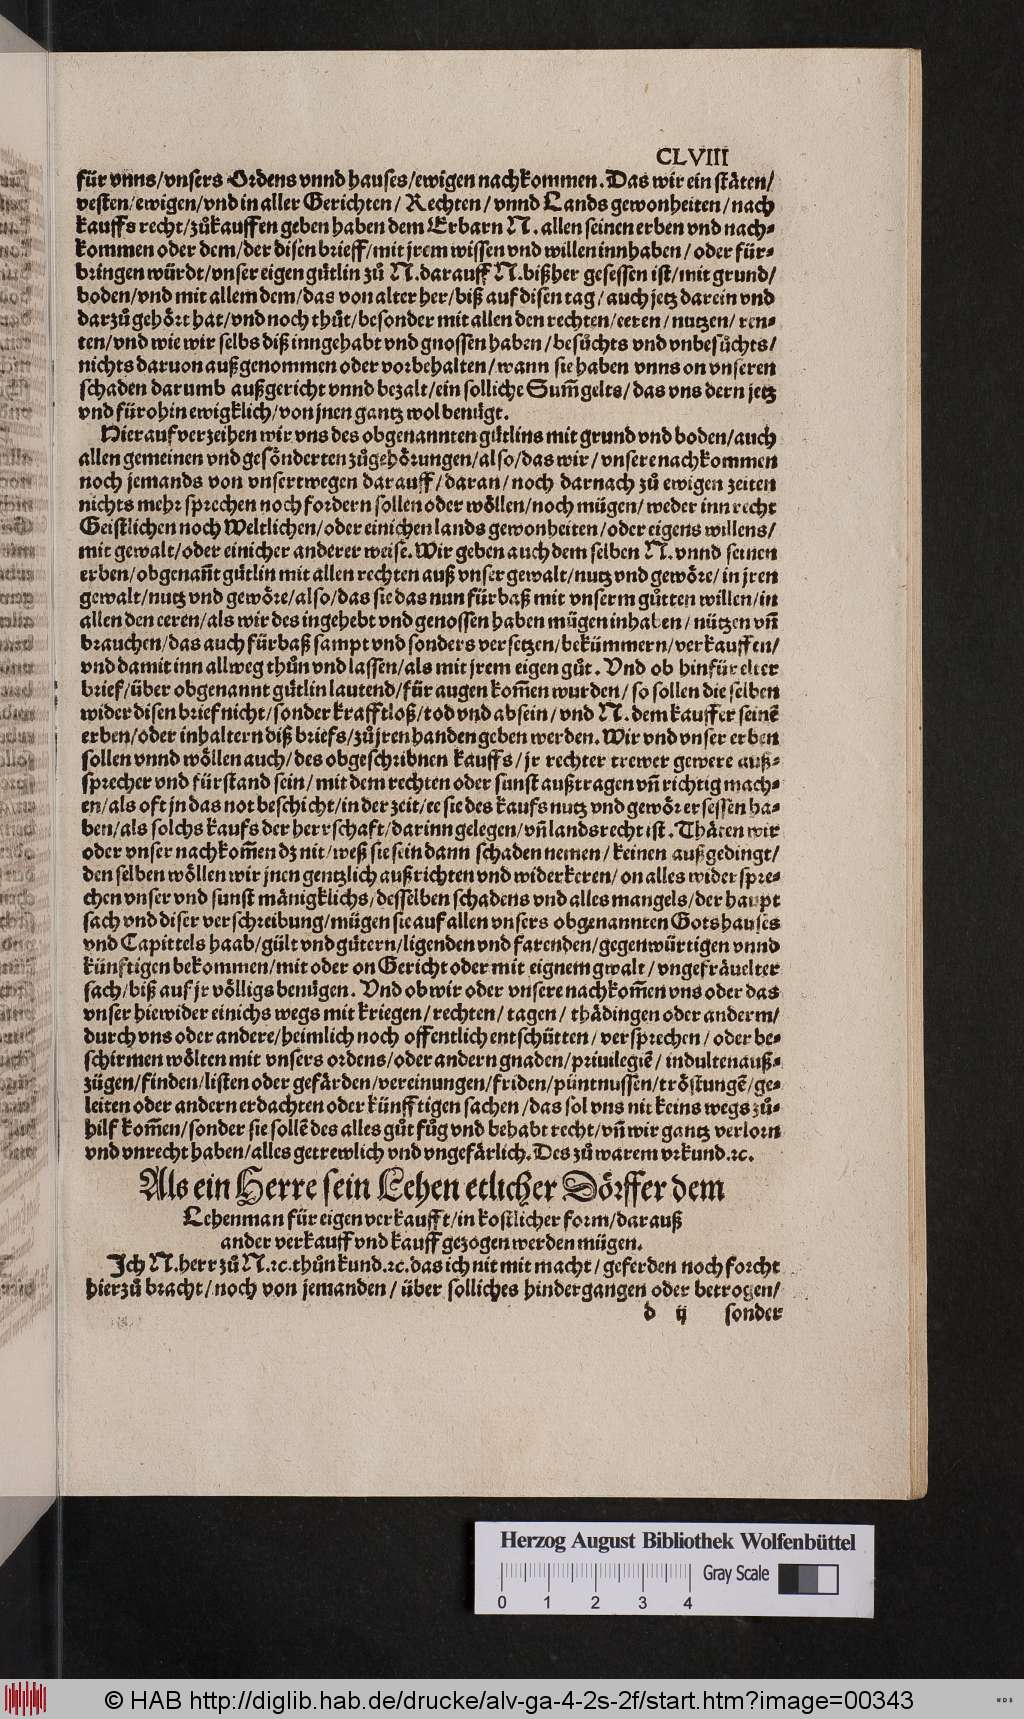 CLVIII
für vnns/vnsers Ordens vnnd hauses/ewigen nachkommen. Das wir ein stäten/
vesten/ewigen/vnd in aller Gerichten/ Rechten/ vnnd Lands gewonheiten/ nach
kauffs recht/zůkauffen geben haben dem Erbarn N. allen seinen erben vnd nach-
kommen oder dem/der disen brieff/mit jrem wissen vnd willen innhaben/ oder für-
bringen würdt/vnser eigen gůtlin zů N. darauff N. bißher gesessen ist/mit grund/
boden/vnd mit allem dem/das von alter her/biß auf disen tag/auch jetz darein vnd
darzů gehört hat/vnd noch thůt/besonder mit allen den rechten/eeren/ nutzen/ ren-
ten/vnd wie wir selbs diß inngehabt vnd gnossen haben/ besůchts vnd vnbesůchts/
nichts daruon außgenommen oder vorbehalten/wann sie haben vnns on vnseren
schaden darumb außgericht vnnd bezalt/ein solliche Sum̃ gelts/das vns dern jetz
vnd fürohin ewigklich/von jnen gantz wol benügt.
Hierauf verzeihen wir vns des obgenannten gůtlins mit grund vnd boden/auch
allen gemeinen vnd gesönderten zůgehörungen/also/das wir/ vnsere nachkommen
noch jemands von vnsertwegen darauff/daran/noch darnach zů ewigen zeiten
nichts mehr sprechen noch fordern sollen oder wöllen/noch mügen/ weder inn recht
Geistlichen noch Weltlichen/oder einichen lands gewonheiten/oder eigens willens/
mit gewalt/oder einicher anderer weise. Wir geben auch dem selben N. vnnd seinen
erben/obgenañt gůtlin mit allen rechten auß vnser gewalt/nutz vnd gewöre/ in jren
gewalt/nutz vnd gewöre/also/das sie das nun fürbaß mit vnserm gůtten willen/in
allen den eeren/als wir des ingehebt vnd genossen haben mügen inhaben/ nützen vñ
brauchen/das auch fürbaß sampt vnd sonders versetzen/bekümmern/verkauffen/
vnd damit inn allweg thůn vnd lassen/als mit jrem eigen gůt. Vnd ob hinfür elter
brief/über obgenannt gůtlin lautend/für augen kom̃en wurden/ so sollen die selben
wider disen brief nicht/sonder krafftloß/tod vnd absein/vnd N. dem kauffer seinē
erben/oder inhaltern diß briefs/zů jren handen geben werden. Wir vnd vnser erben
sollen vnnd wöllen auch/des obgeschribnen kauffs/jr rechter trewer gewere auß-
sprecher vnd fürstand sein/mit dem rechten oder sunst außtragen vñ richtig mach-
en/als oft jn das not beschicht/in der zeit/ee sie des kaufs nutz vnd gewör ersessen ha-
ben/als solchs kaufs der herrschaft/darinn gelegen/vñ landsrecht ist. Thäten wir
oder vnser nachkom̃en dz nit/weß sie sein dann schaden nemen/ keinen außgedingt/
den selben wöllen wir jnen gentzlich außrichten vnd widerkeren/on alles wider spre-
chen vnser vnd sunst mänigklichs/desselben schadens vnd alles mangels/der haupt
sach vnd diser verschreibung/mügen sie auf allen vnsers obgenannten Gotshauses
vnd Capittels haab/gült vnd gůtern/ligenden vnd farenden/gegenwürtigen vnnd
künftigen bekommen/mit oder on Gericht oder mit eignem gwalt/vngefräuelter
sach/biß auf jr völligs benügen. Vnd ob wir oder vnsere nachkom̃en vns oder das
vnser hiewider einichs wegs mit kriegen/rechten/ tagen/ thädingen oder anderm/
durch vns oder andere/heimlich noch offentlich entschütten/ versprechen/ oder be-
schirmen wölten mit vnsers ordens/oder andern gnaden/priuilegiē/ indulten auß-
zügen/finden/listen oder gefärden/vereinungen/friden/püntnussen/tröstungē/ge-
leiten oder andern erdachten oder künfftigen sachen/das sol vns nit keins wegs zů-
hilf kom̃en/sonder sie sollē des alles gůt fůg vnd behabt recht/vñ wir gantz verlorn
vnd vnrecht haben/alles getrewlich vnd vngefärlich. Des zů warem vrkund.ꝛc.
Als ein Herre sein Lehen etlicher Dörffer dem
Lehenman für eigen verkaufft/in kostlicher form/darauß
ander verkauff vnd kauff gezogen werden mügen.
Ich N. herr zů N.ꝛc. thůn kund.ꝛc. das ich nit mit macht/geferden noch forcht
hierzů bracht/noch von jemanden/über solliches hindergangen oder betrogen/
d ij sonder
Herzog August Bibliothek Wolfenbüttel
Gray Scale
0 1 2 3 4
© HAB http://diglib.hab.de/drucke/alv-ga-4-2s-2f/start.htm?image=00343